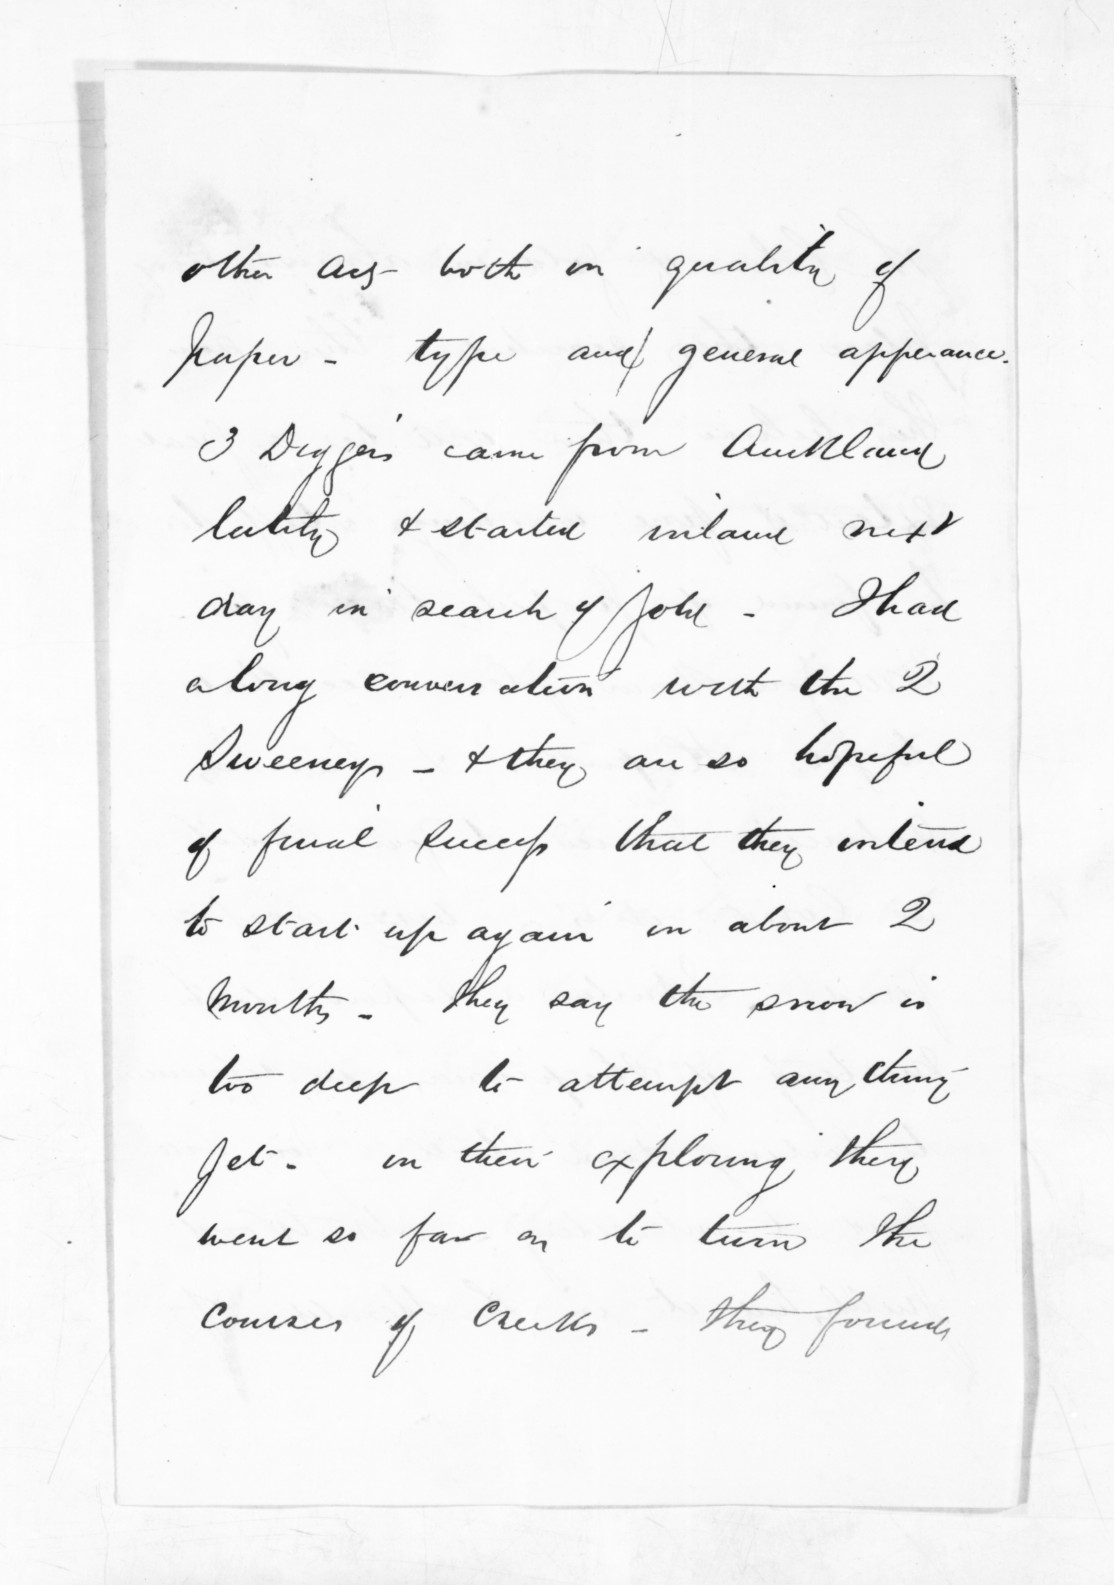 other Acts both in quality of
paper - type and general apperance.
3 Diggers came from Auckland
lately & started inland next
day in search of Gold - I had
along conversation with the 2
Sweeneys - & they are so hopeful
of final success that they intend
to start up again in about 2
Months - they say the snow is
too deep to attempt any thing
Yet - in their exploring they
went so far as to turn the
courses of Creeks - they found